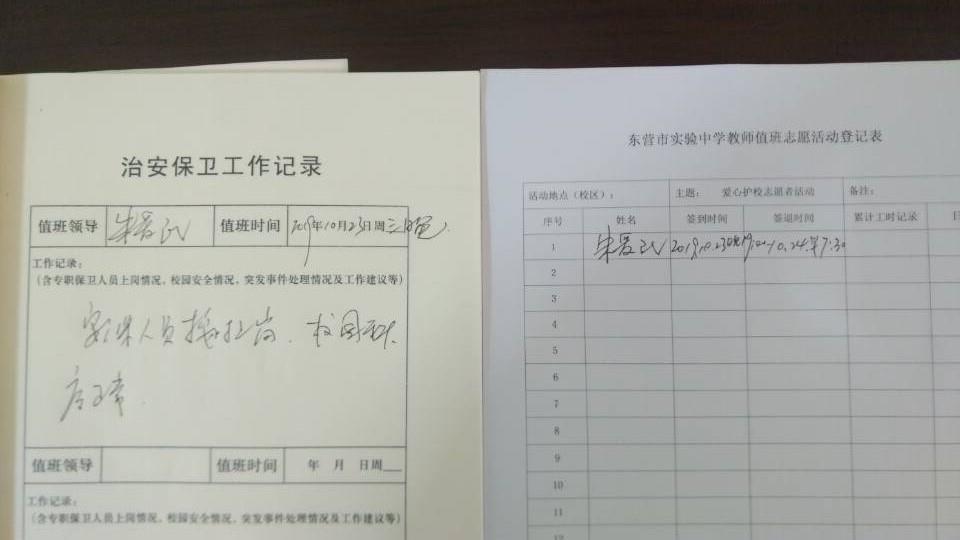 治安保卫工作记录
值班领导 朱爱民 值班时间 2019年10月23日周三
工作记录：
（含专职保卫人员上岗情况，校园安全情况，突发事件处理情况及工作建议等）
人员 岗
正常.
值班领导 值班时间 年 月 日周
工作记录：
（含专职保卫人员上岗情况，校园安全情况，突发事件处理情况及工作建议等）
东营市实验中学教师值班志愿活动登记表
活动地点（校区）： 主题： 爱心护校志愿者活动 备注：
序号 姓名 签到时间 签退时间 累计工时记录
1 朱爱民 2019.10.23 10.24 7:30
2
3
4
5
6
7
8
9
10
11
12